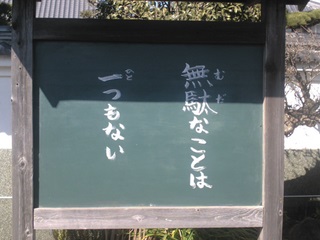 無駄なことは
一つもない